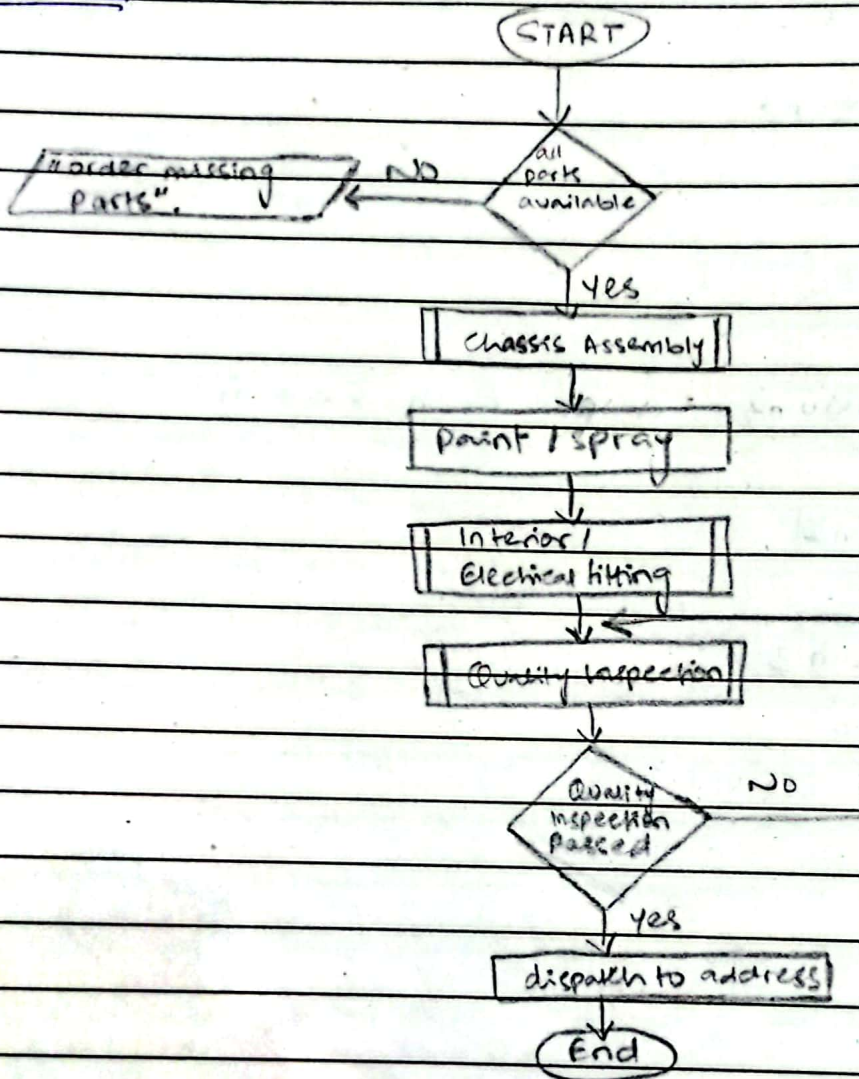 START
all
parts
available
NO
"order missing
Parts".
yes
Chassis Assembly
paint / spray
Interior /
Electrical fitting
Quality Inspection
Quality
inspection
Passed
NO
yes
dispatch to address
End